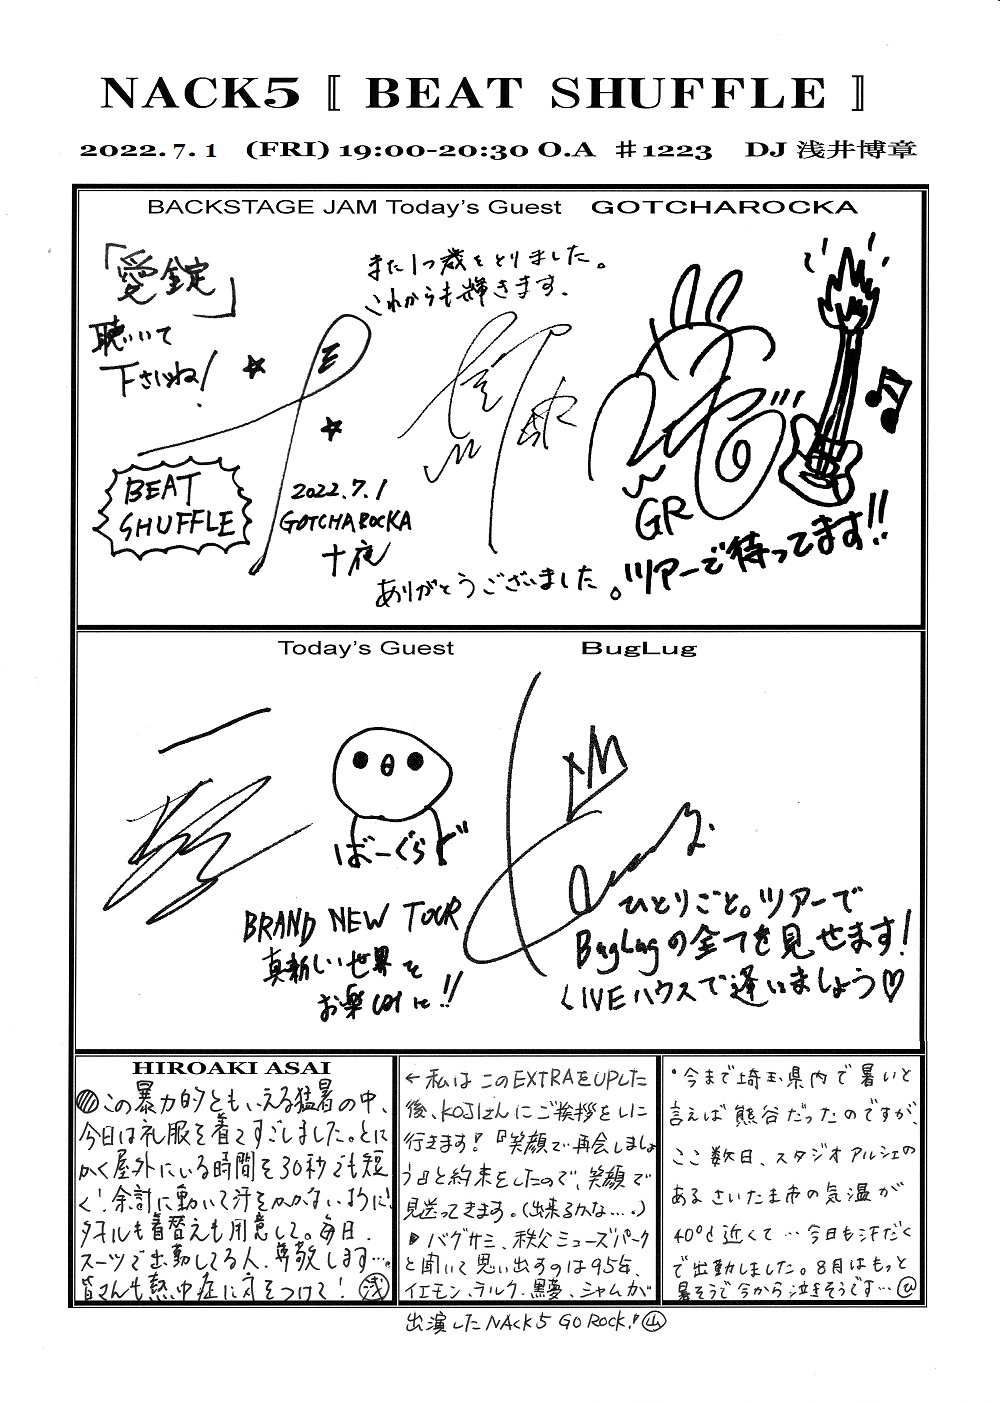 NACK5 〚 BEAT SHUFFLE 〛
2022.7.1 (FRI) 19:00-20:30 O.A ♯1223 DJ 浅井博章
BACKSTAGE JAM Today's Guest GOTCHAROCKA
「愛錠」
聴いて
下さいね!
また1つ歳をとりました。
これからも輝きます.
BEAT
SHUFFLE
2022.7.1
GOTCHAROCKA
十夜
ありがとうございました。
GR
ツアーで待ってます!!
Today's Guest BugLug
一聖
ばーぐらど
BRAND NEW TOUR
真新しい世界を
お楽しみに!!
ひとりごと。ツアーで
BugLugの全てを見せます!
LIVEハウスで逢いましょう♡
HIROAKI ASAI
この暴力的ともいえる猛暑の中、
今日は礼服を着てすごしました。とに
かく屋外にいる時間を30秒でも短
く!余計に動いて汗をかかないように!
タオルも着替えも用意して。毎日、
スーツで出勤してる人、尊敬します…。
皆さんも熱中症に気をつけて! 浅
←私はこのEXTRAをUPした
後、KOJIさんにご挨拶をしに
行きます!『笑顔で再会しましょ
う』と約束をしたので、笑顔で
見送ってきます。(出来るかな….)
▶バグサミ、秩父ミューズパーク
と聞いて思い出すのは95年、
イエモン、ラルク、黒夢、シャムが
出演したNACK5 GO ROCK! 山
・今まで埼玉県内で暑いと
言えば熊谷だったのですが、
ここ数日、スタジオアルシェの
あるさいたま市の気温が
40°C近くて…今日も汗だく
で出勤しました。8月はもっと
暑そうで今から泣きそうです…@